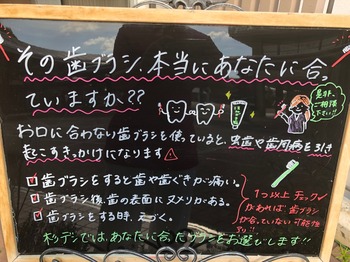 その歯ブラシ、本当にあなたに合っ
ていますか??
是非、
ご相談
下さい!!
お口に合わない歯ブラシを使っていると、虫歯や歯周病を引き
起こすきっかけになります
歯ブラシをすると歯や歯ぐきが痛い。
歯ブラシ後、歯の表面にヌメリがある。
歯ブラシをする時、えづく。
1つ以上チェック
があれば歯ブラシ
が合っていない可能性
あり!!
では、あなたに合ったブラシをお選びします!!